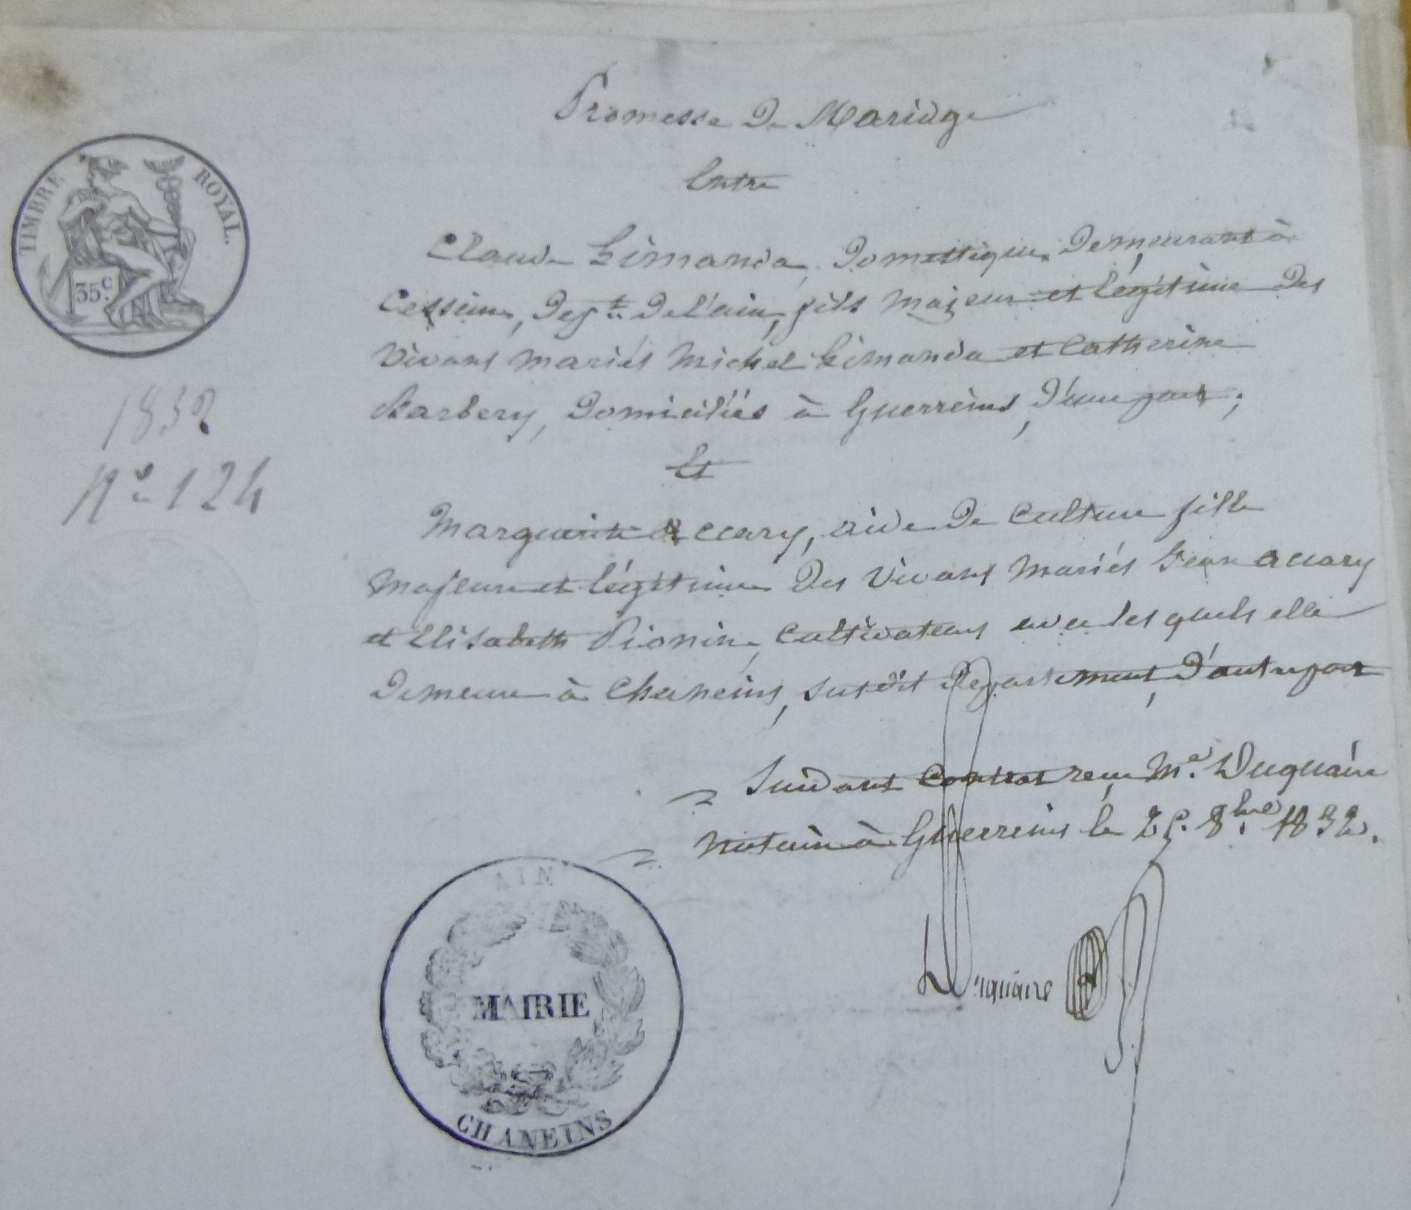 Promesse De Mariage
Entre
TIMBRE ROYAL.
35.c
Claude Limanda, Domestique Demeurant à
Cesseins, Dept. De L'ain, fils Majeur et légitime Des
Vivans mariés Michel Limanda et Catherine
Barbery, Domiciliés à Guerreins, D'une part;
1832
No 124
Et
Marguerite Accary, aide De Culture fille
Majeure et légitime Des Vivans Mariés Jean accary
et Elisabeth Pionin, Cultivateurs avec les quels elle
Demeure à Chaneins, susdit Departement, D'autre part
Suivant Contrat reçu Me. Duquaire
Notaire à Guerreins le 25. 8.bre 1832.
Duquaire
AIN
MAIRIE
CHANEINS